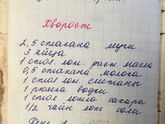 Хворост
2,5 стакана муки
3 яйца
1 стол. лож. раст масла
0,5 стакана молока
1 стол. лож. сметаны
1 рюмка водки
1 стол ложка сахара
1/2 чайн лож соли